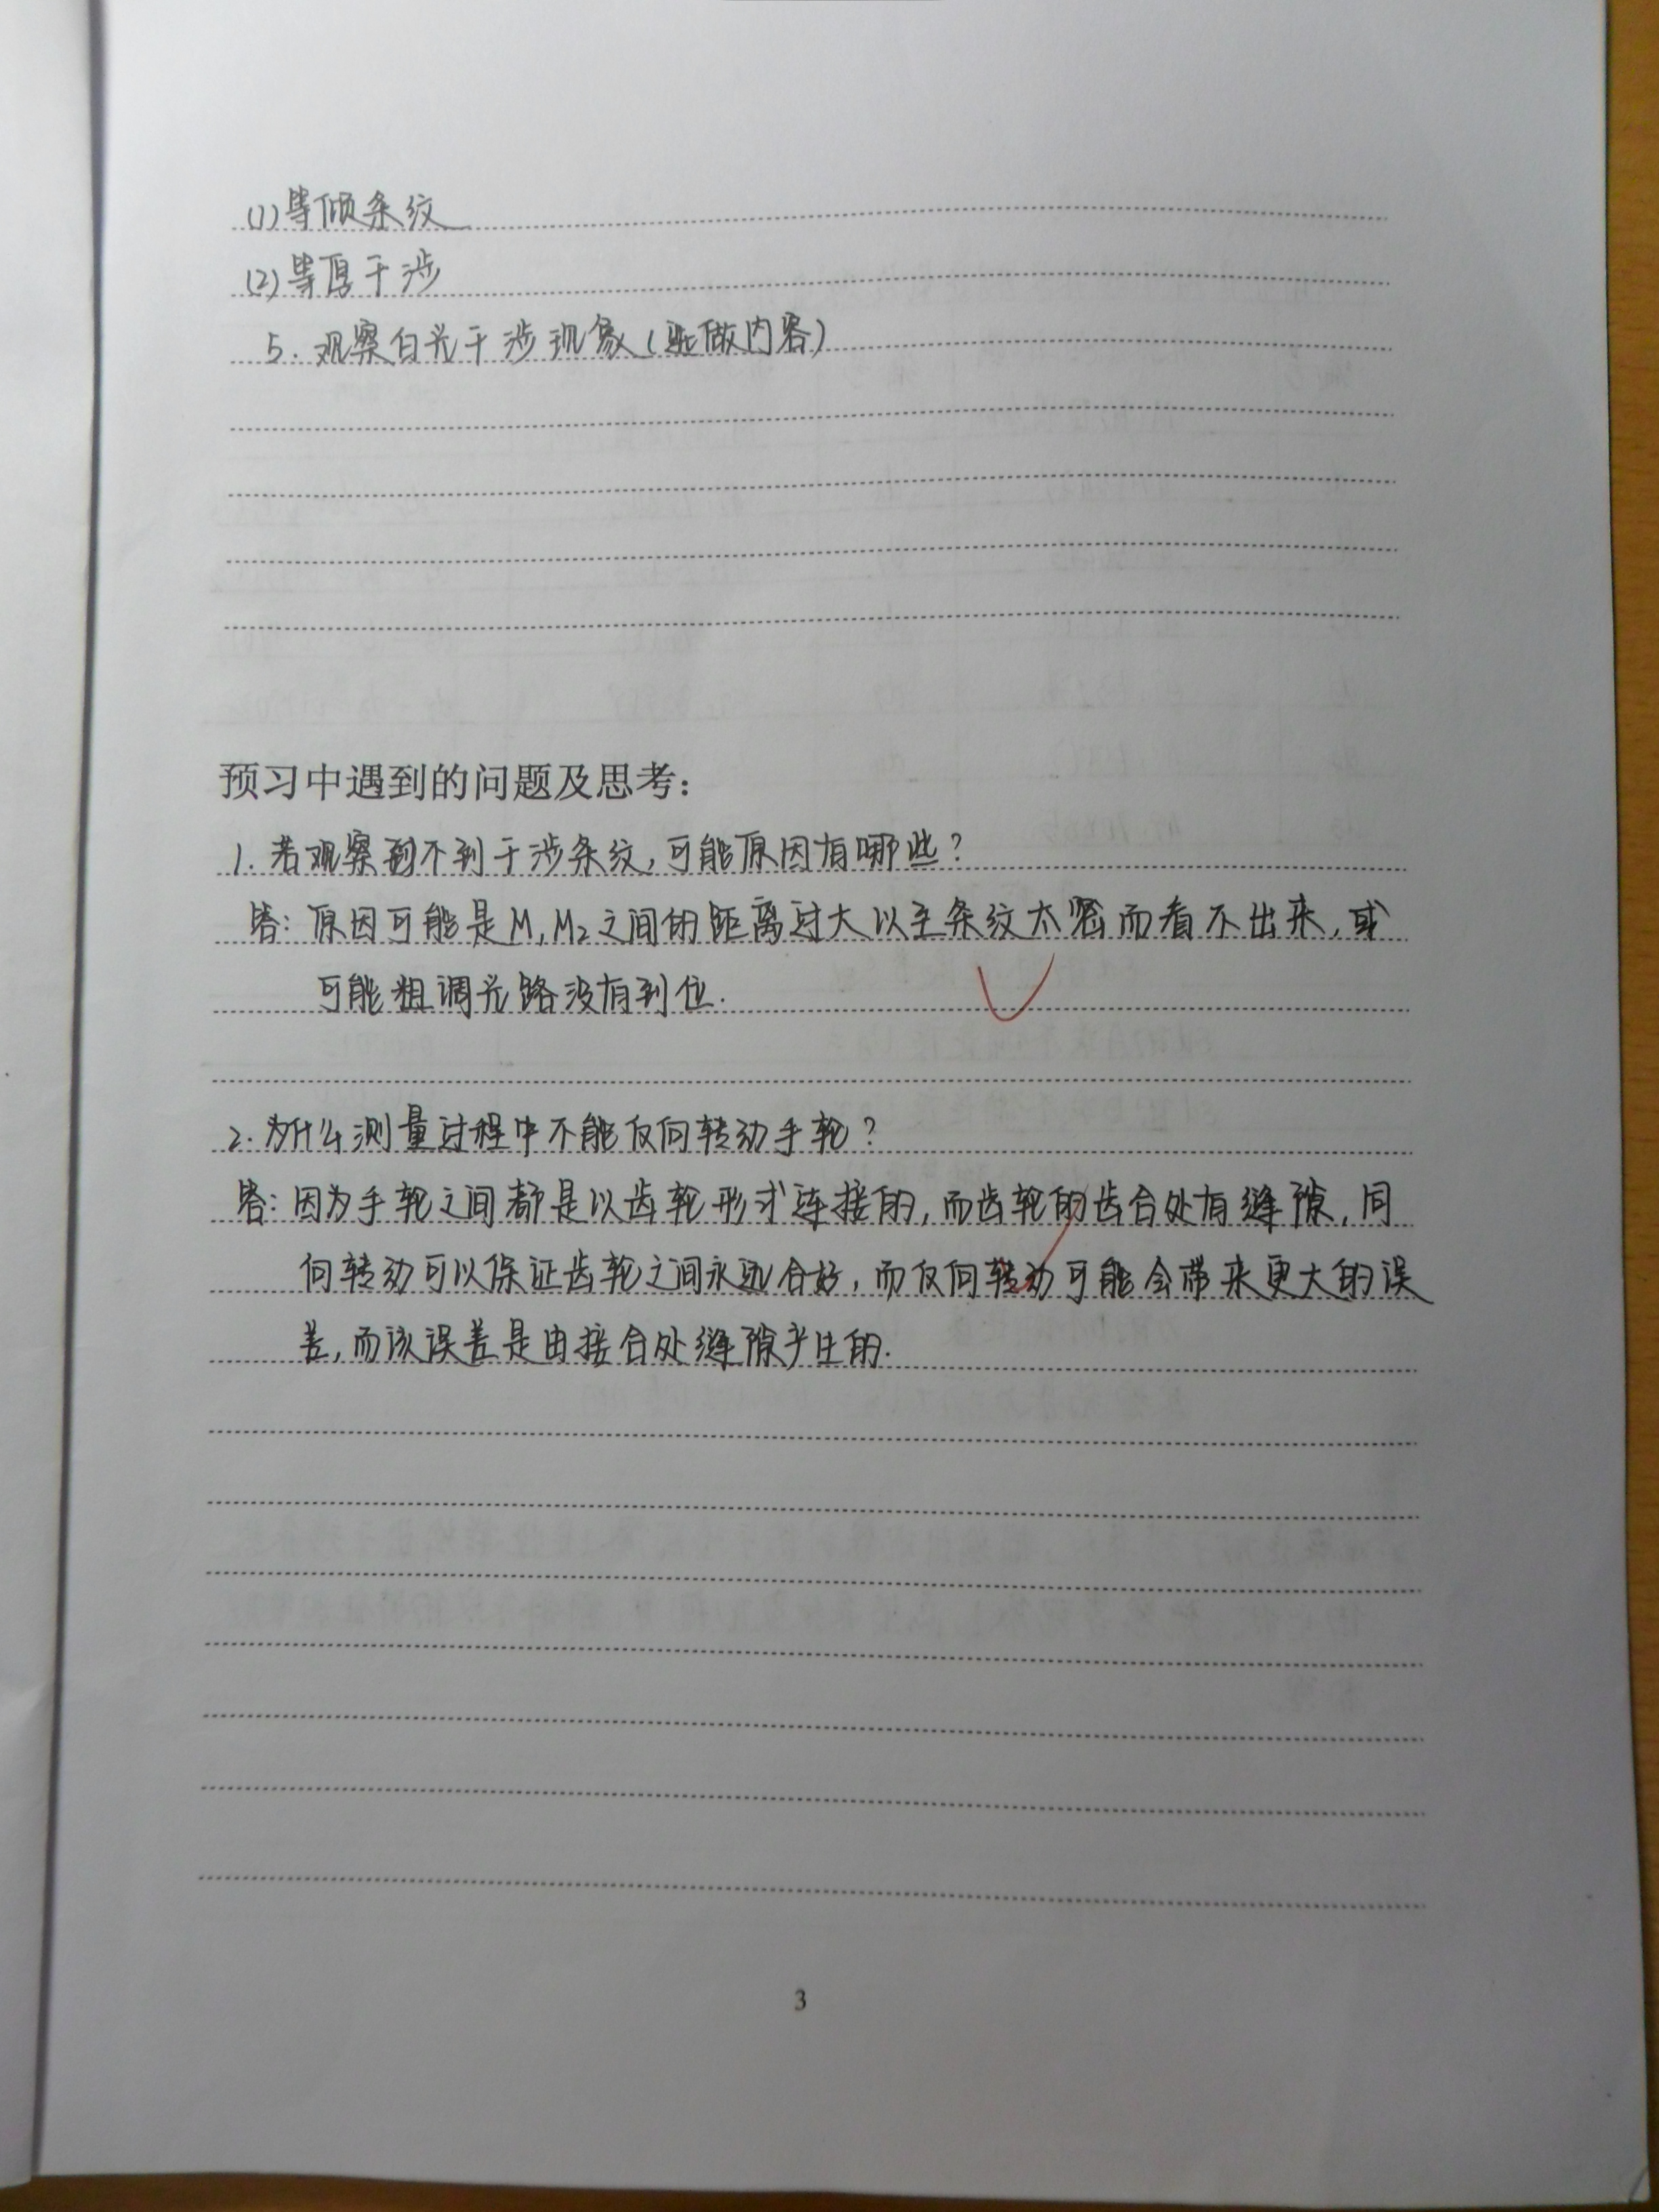 (1)等倾条纹
(2)等厚干涉
5. 观察白光干涉现象(选做内容)
预习中遇到的问题及思考:
1. 若观察到不到干涉条纹,可能原因有哪些?
答: 原因可能是M₁,M₂之间的距离过大以至条纹太密而看不出来,或
可能粗调光路没有到位.
2. 为什么测量过程中不能反向转动手轮?
答: 因为手轮之间都是以齿轮形式连接的,而齿轮的齿合处有缝隙,同
向转动可以保证齿轮之间永远合好,而反向转动可能会带来更大的误
差,而该误差是由接合处缝隙产生的.
3